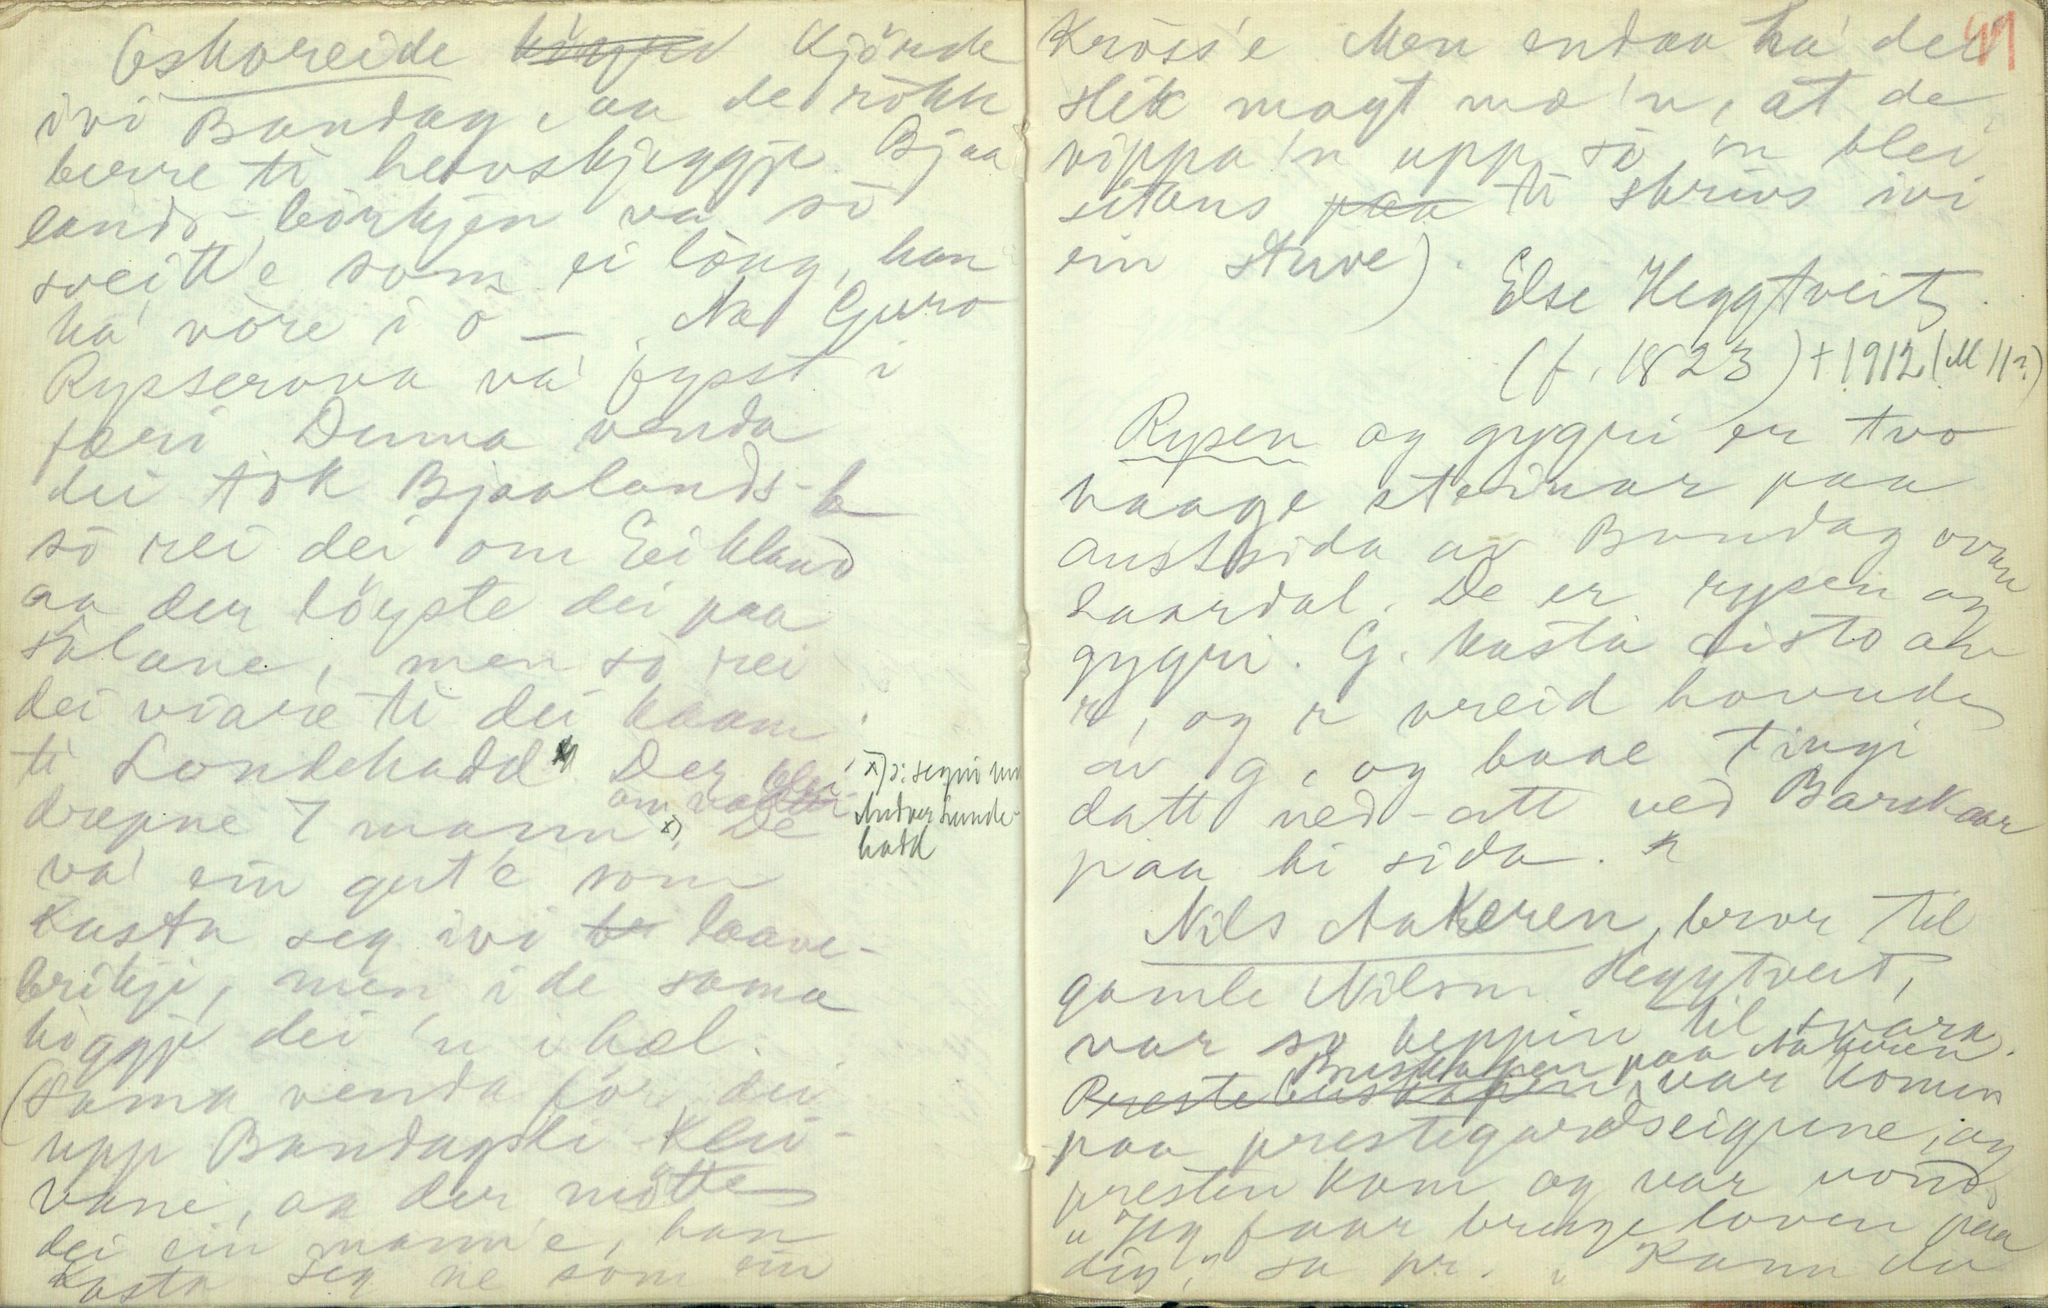 Oskoreide kjörde
ivi Bandag, aa de rökk
berre ti hovskjeggje. Bjaa
lands-börkjen va sö
sveitt'e som ei laug, han
ha' vöre i ö —. Na' Guro
Rysserova va' fysst i
færi. Denna venda
dei tok Bjaalands-b
sö rei dei om Eikland
aa der löyste dei paa
salane, men sö rei
dei viare ti dei kaam
ti Londehadd. Der blei
drepne 7 mann x). De
va' ein gut'e som
kasta seg ivi laave-
brikji, men i de sama
höggji dei 'n ihæl.
(Sama venda för dei
upp Bandagsli-Klei-
vane, aa der mötte
dei ein mann'e, han
kasta seg ne som ein
x) ɔ: segni um
hadd
Kross'e. Men endaa ha' dei
slik magt mæ 'n, at de
vippa 'n upp, sö 'n blei
sitans ti skrivs ivi
ein stuve).
Else Heggtveit
(f. 1823) † 1912 (M II 2)
41
Rysen og gygri er two
haage steinar paa
austsida av Bandag ovan
Laardal. De er rysen og
gygri. G. kasta
r, og r vreid hovude
av g, og baae tingi
datt ned-att ved Barskaar
paa hi sida.
Nils Aakeren, bror til
gamle Nilsen Heggtveit,
var so heppin til svara.
Buskapen paa Aakeren
var komin
paa prestegardseigune, og
presten kom og var vond.
"Jeg faar bringe loven paa
dig," sa pr. "Kann du